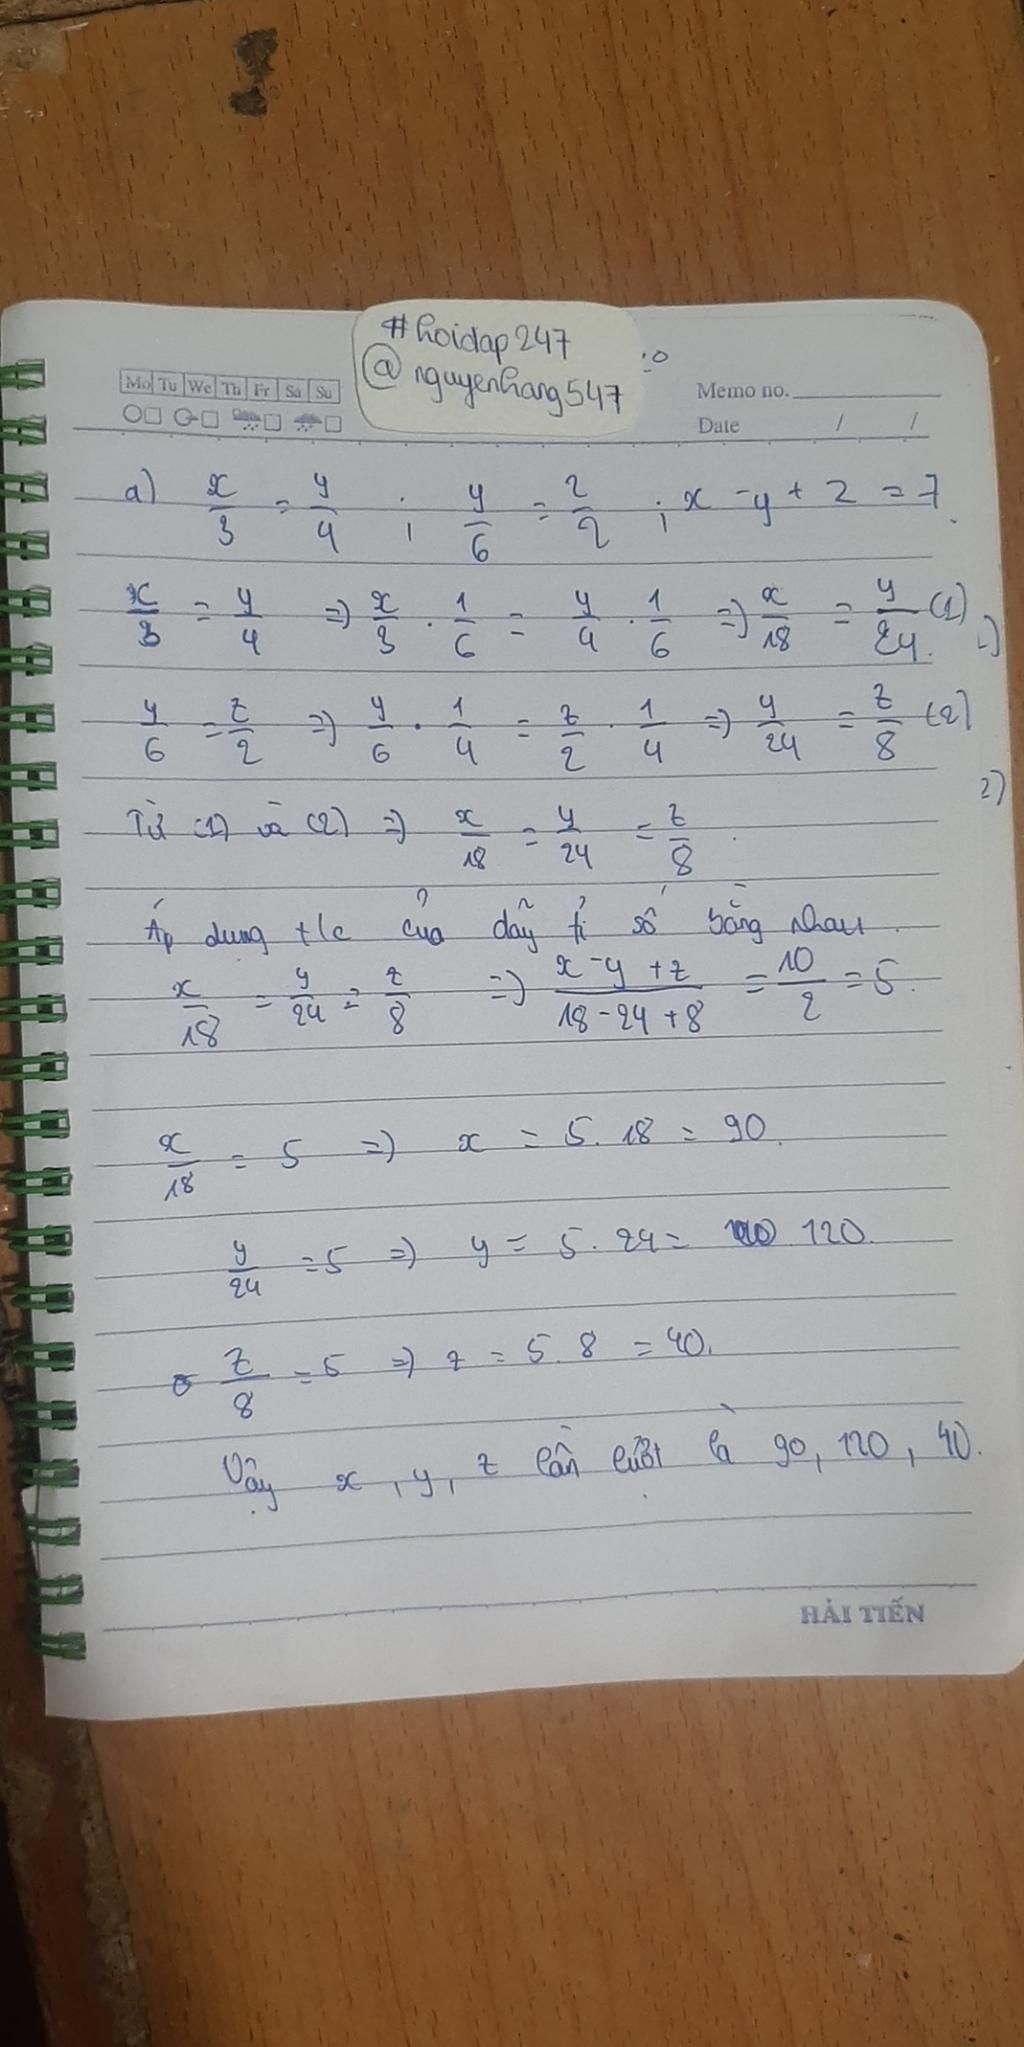 #hoidap247
@nguyenhang547
Mo Tu We Th Fr Sa Su
Memo no.
Date / /
a) x/3 = y/4 ; y/6 = 2/2 ; x - y + 2 = 7.
x/3 = y/4 => x/3 . 1/6 = y/4 . 1/6 => x/18 = y/24. (1)
y/6 = z/2 => y/6 . 1/4 = z/2 . 1/4 => y/24 = z/8 (2)
2)
Từ (1) và (2) => x/18 = y/24 = z/8.
Áp dung t/c của dãy tỉ số bằng nhau.
x/18 = y/24 = z/8 => x - y + z/18 - 24 + 8 = 10/2 = 5.
x/18 = 5 => x = 5. 18 = 90.
y/24 = 5 => y = 5. 24 = 120.
z/8 = 5 => z = 5. 8 = 40.
Vậy x, y, z lần lượt là 90, 120, 40.
HẢI TIẾN